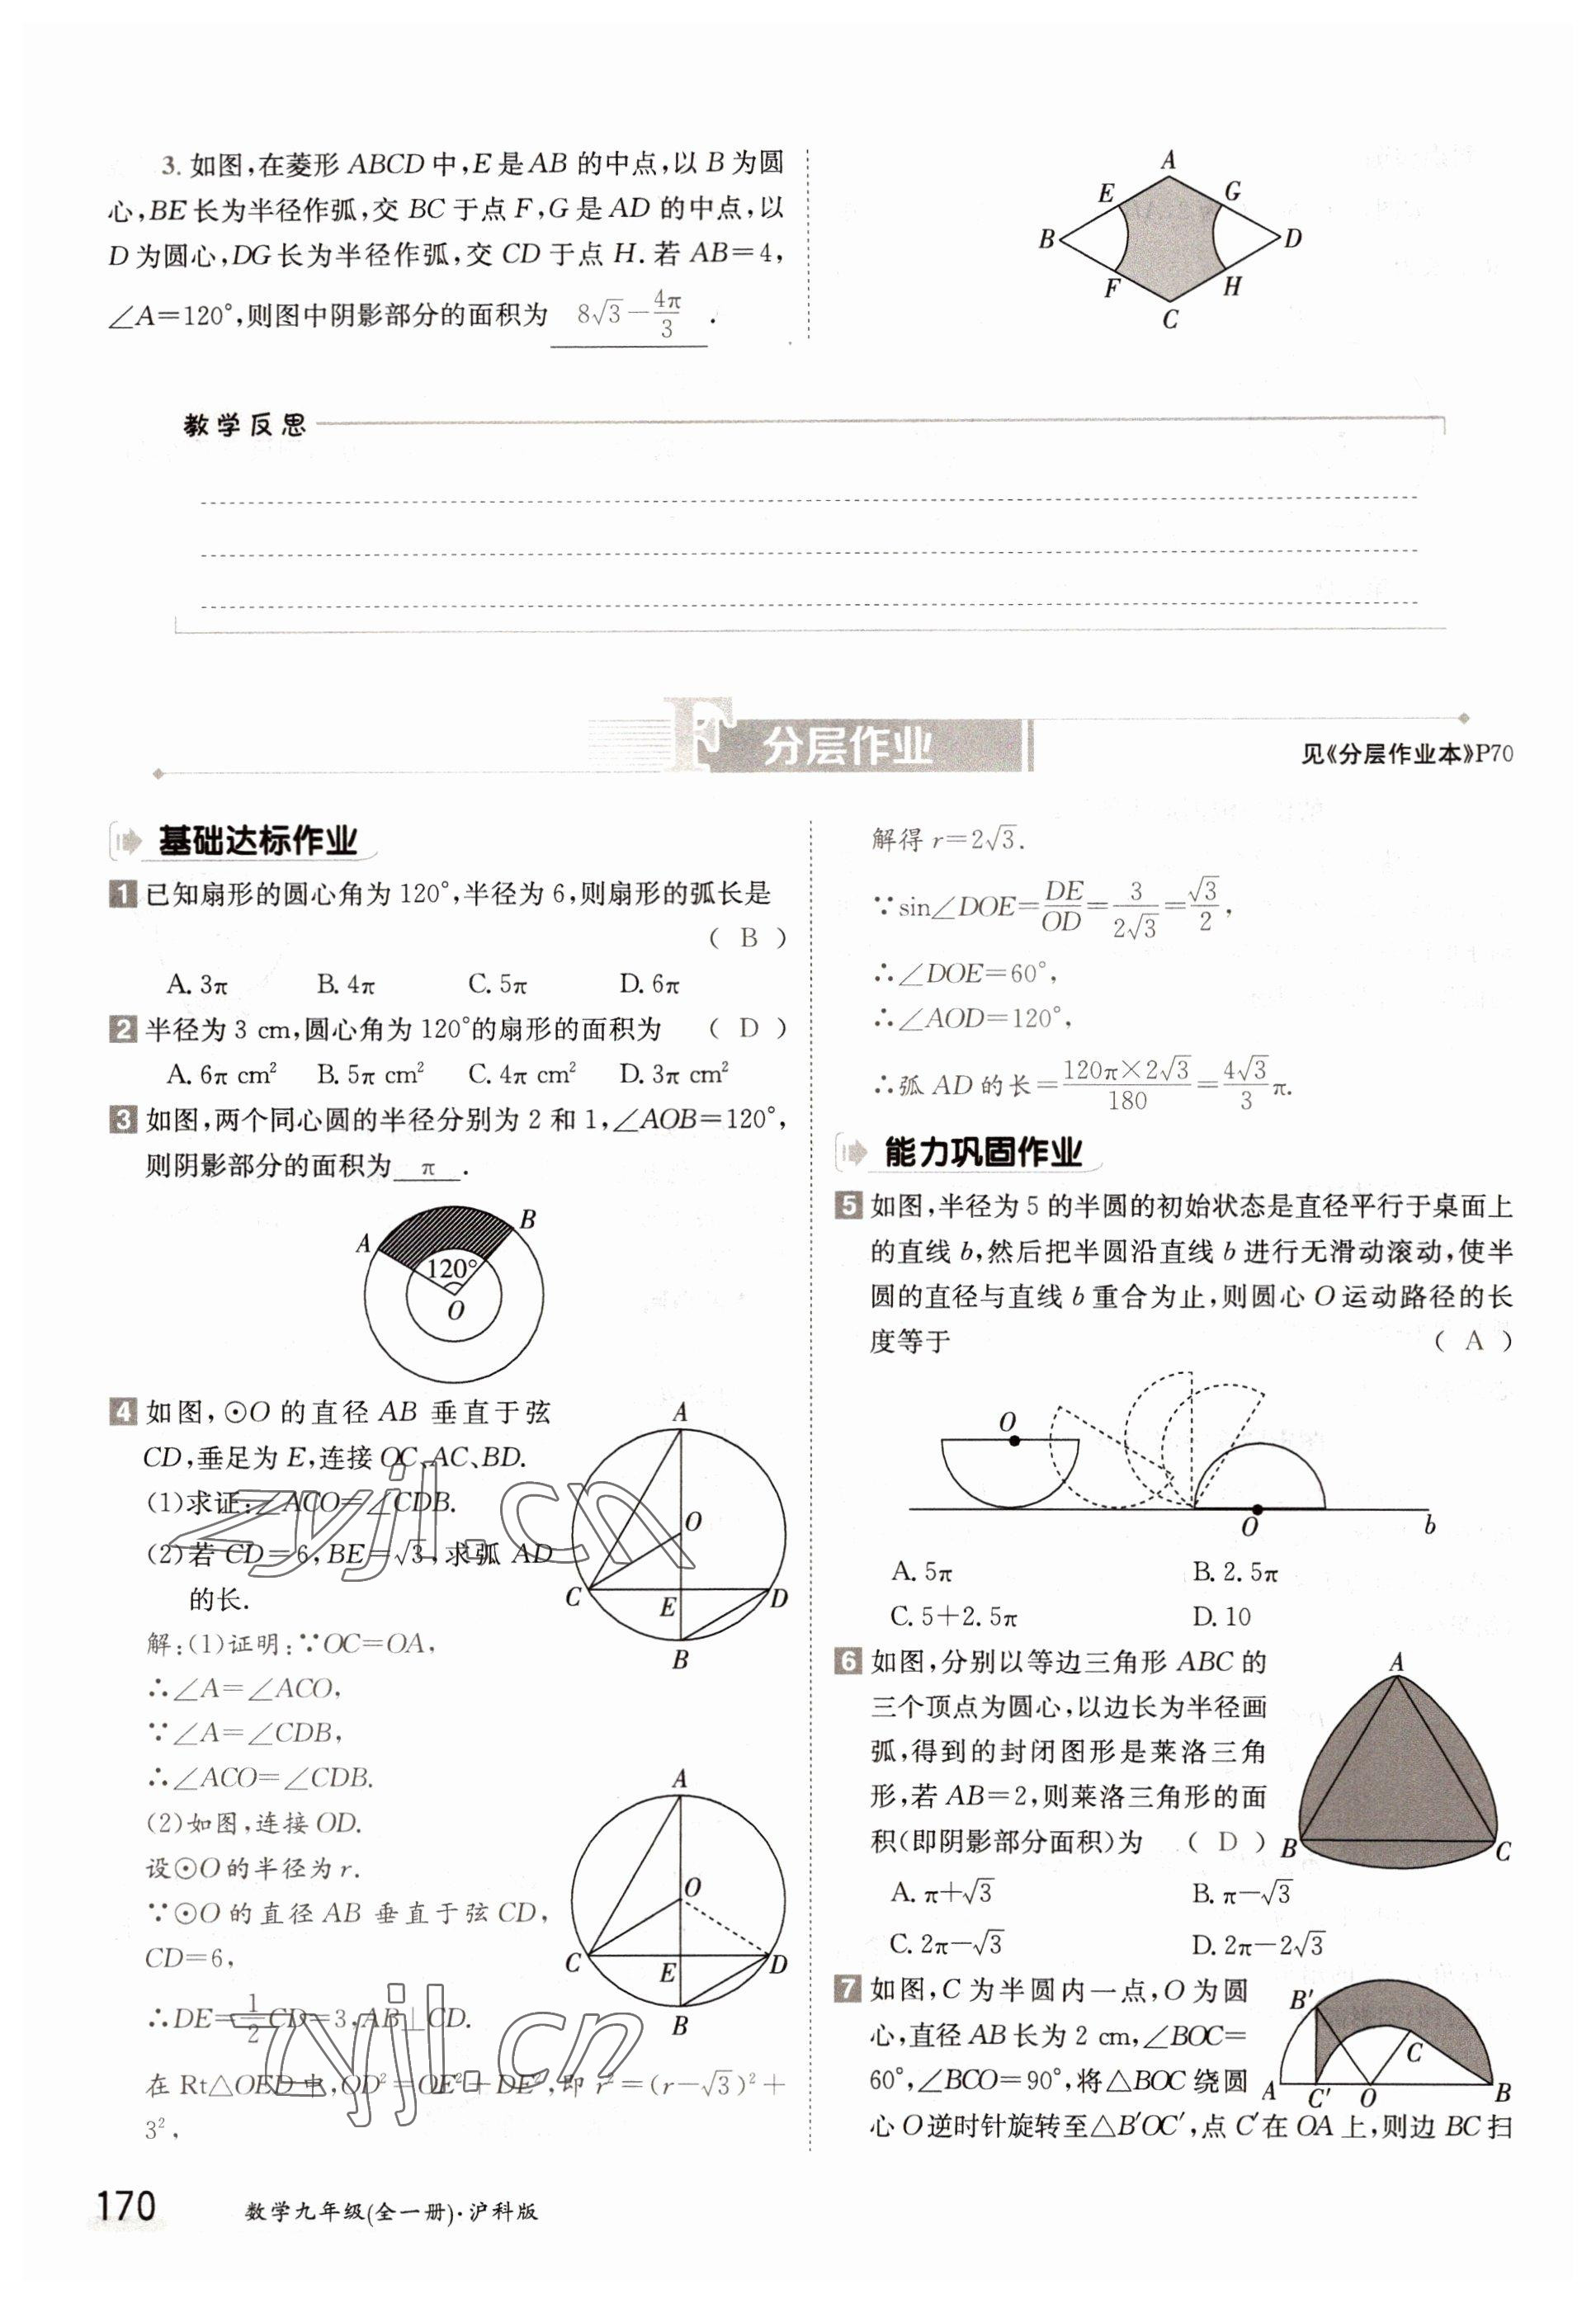 3. 如图,在菱形 ABCD 中,E 是 AB 的中点,以 B 为圆
心,BE 长为半径作弧,交 BC 于点 F,G 是 AD 的中点,以
D 为圆心,DG 长为半径作弧,交 CD 于点 H. 若 AB=4,
∠A=120°,则图中阴影部分的面积为 8√3-4π/3 .
A
E
G
B
D
F
H
C
教学反思
F 分层作业
见《分层作业本》P70
基础达标作业
1 已知扇形的圆心角为 120°,半径为 6,则扇形的弧长是
( B )
A. 3π B. 4π C. 5π D. 6π
2 半径为 3 cm,圆心角为 120°的扇形的面积为 ( D )
A. 6π cm² B. 5π cm² C. 4π cm² D. 3π cm²
3 如图,两个同心圆的半径分别为 2 和 1,∠AOB=120°,
则阴影部分的面积为 π .
A
B
120°
O
4 如图,⊙O 的直径 AB 垂直于弦
CD,垂足为 E,连接 OC、AC、BD.
(1)求证:∠ACO=∠CDB.
(2)若 CD=6,BE=√3,求弧 AD
的长.
A
O
C
E
D
B
解:(1)证明:∵OC=OA,
∴∠A=∠ACO,
∵∠A=∠CDB,
∴∠ACO=∠CDB.
(2)如图,连接 OD.
设⊙O 的半径为 r.
∵⊙O 的直径 AB 垂直于弦 CD,
CD=6,
∴DE=1/2CD=3,AB⊥CD.
A
O
C
E
D
B
在 Rt△OED 中,OD²=OE²+DE²,即 r²=(r-√3)²+
3²,
zyjl.cn
zyjl.cn
解得 r=2√3.
∵sin∠DOE=DE/OD=3/2√3=√3/2,
∴∠DOE=60°,
∴∠AOD=120°,
∴弧 AD 的长=120π×2√3/180=4√3/3π.
能力巩固作业
5 如图,半径为 5 的半圆的初始状态是直径平行于桌面上
的直线 b,然后把半圆沿直线 b 进行无滑动滚动,使半
圆的直径与直线 b 重合为止,则圆心 O 运动路径的长
度等于 ( A )
O
O
b
A. 5π B. 2.5π
C. 5+2.5π D. 10
6 如图,分别以等边三角形 ABC 的
三个顶点为圆心,以边长为半径画
弧,得到的封闭图形是莱洛三角
形,若 AB=2,则莱洛三角形的面
积(即阴影部分面积)为 ( D )
A
B
C
A. π+√3 B. π-√3
C. 2π-√3 D. 2π-2√3
7 如图,C 为半圆内一点,O 为圆
心,直径 AB 长为 2 cm,∠BOC=
60°,∠BCO=90°,将△BOC 绕圆
心 O 逆时针旋转至△B′OC′,点 C′在 OA 上,则边 BC 扫
B′
C
A
C′
O
B
170 数学九年级(全一册)·沪科版